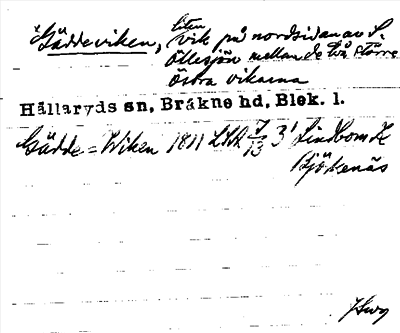 Gäddeviken, liten vik på nordsidan av S.
Öllesjön mellan de två större
östra vikarna
Hällaryds sn, Bräkne hd, Blek. l.
Gädde=Wiken 1811 LSA 7/13 3' Lindbom K
Björkenäs